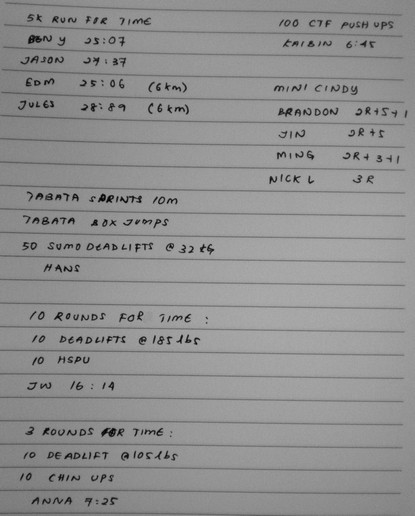 5K RUN FOR TIME
BEN Y 25:07
JASON 27:37
EDM 25:06 (6km)
JULES 28:89 (6km)
100 CTF PUSH UPS
KAIBIN 6:45
MINI CINDY
BRANDON 2R+5+1
JIN 2R+5
MING 2R+3+1
NICK L 3R
TABATA SPRINTS 10M
TABATA BOX JUMPS
50 SUMO DEADLIFTS @ 32 KG
HANS
10 ROUNDS FOR TIME :
10 DEADLIFTS @ 185 lbs
10 HSPU
JW 16:14
3 ROUNDS FOR TIME :
10 DEADLIFT @105lbs
10 CHIN UPS
ANNA 7:25